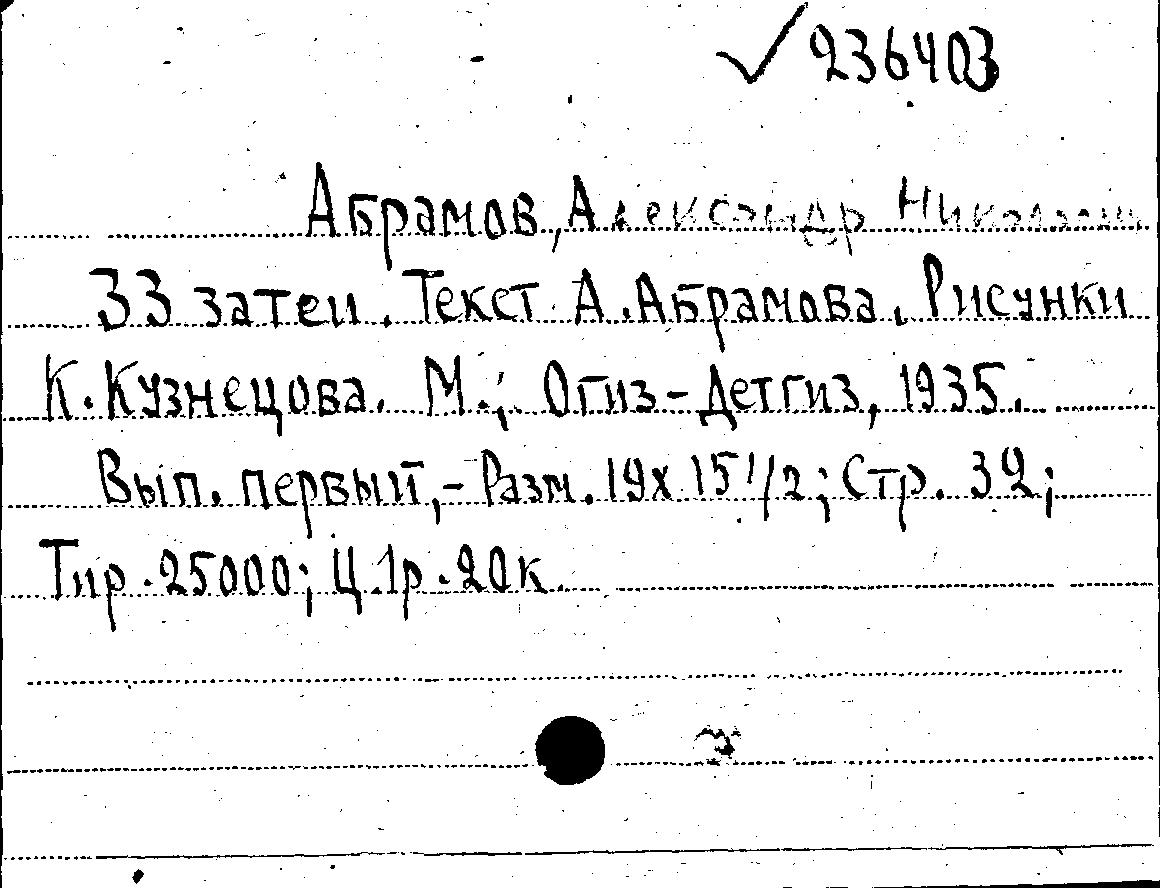 √ 236403
Абрамов, Александр
33 затеи. Текст А. Абрамова. Рисунки
К. Кузнецова. М.; Огиз-Детгиз, 1935.
Вып. первый,- Разм. 19х15 1/2; Стр. 32;
Тир. 25000; Ц. 1р. 20к.